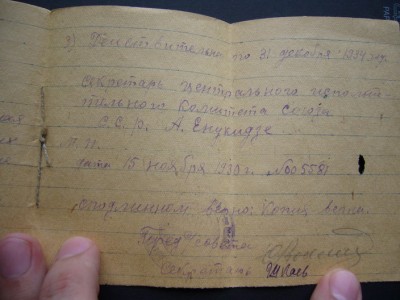 3) Действительна по 31 декабря 1934 год.
Секретарь центрального исполни-
тельного комитета Союза
С.С.Р. А. Енукидзе
М.П.
дата 15 ноября 1930 г. №005581
с подлинном верно: Копия верна.
Перед совета
Секретарь